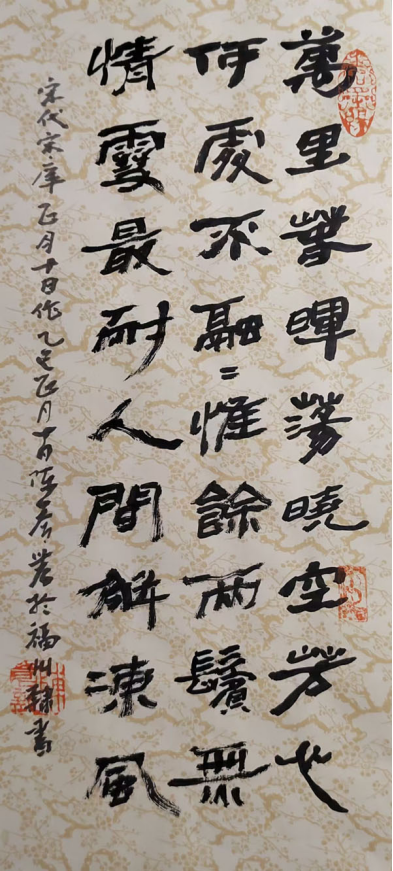 萬里春暉蕩曉空芳心
何處不融〻惟餘兩鬢無
情雪最耐人間解凍風
宋代宋庠正月十日作乙巳正月十日陈春営於福州隸書